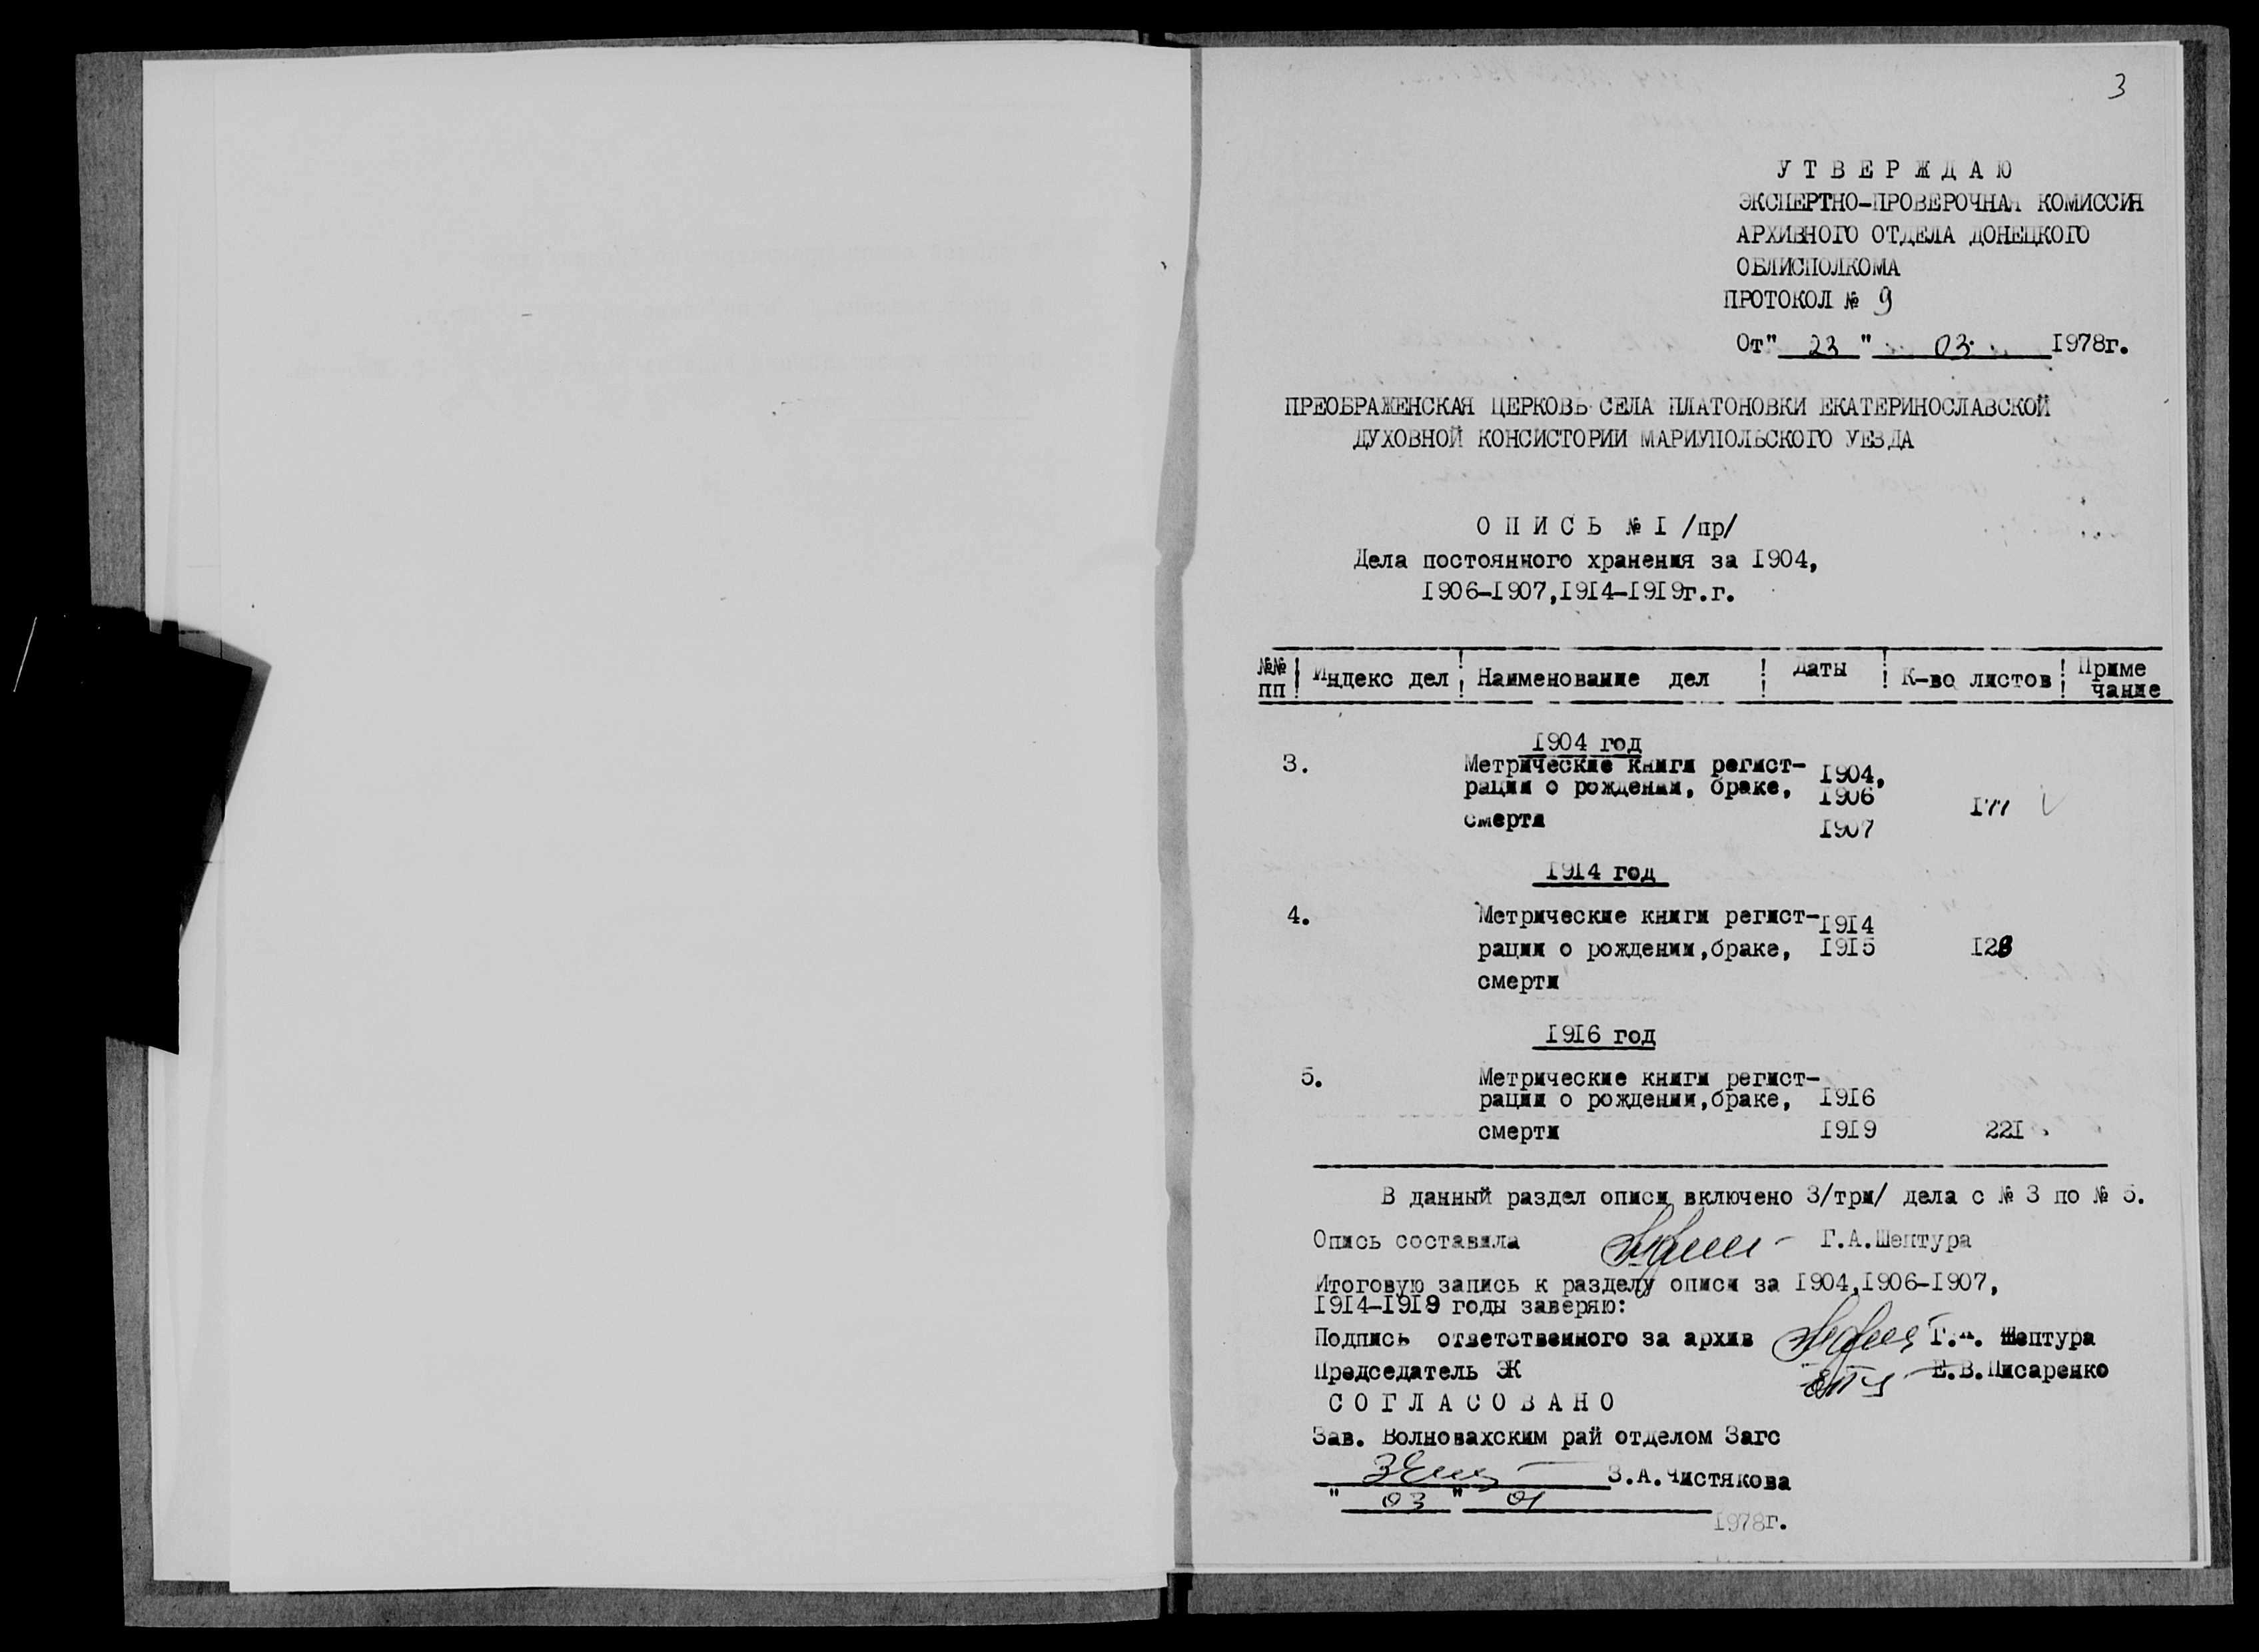 3
У Т В Е Р Ж Д А Ю
ЭКСПЕРТНО-ПРОВЕРОЧНАЯ КОМИССИЯ
АРХИВНОГО ОТДЕЛА ДОНЕЦКОГО
ОБЛИСПОЛКОМА
ПРОТОКОЛ № 9
От" 23 " 03. 1978г.
ПРЕОБРАЖЕНСКАЯ ЦЕРКОВЬ СЕЛА ПЛАТОНОВКИ ЕКАТЕРИНОСЛАВСКОЙ
ДУХОВНОЙ КОНСИСТОРИИ МАРИУПОЛЬСКОГО УЕЗДА
О П И С Ь № I /пр/
Дела постоянного хранения за I904,
I906-I907,I9I4-I9I9г.г.
№№ пп ! Индекс дел ! Наименование дел ! Даты ! К-во листов ! Приме чание
I904 год
3. Метрические книги регист- I904,
рации о рождении, браке, I906
смерти I907 I77
I9I4 год
4. Метрические книги регист- I9I4
рации о рождении,браке, I9I5 I28
смерти
I9I6 год
5. Метрические книги регист-
рации о рождении,браке, I9I6
смерти I9I9 22I
В данный раздел описи включено 3/три/ дела с № 3 по № 5.
Опись составила Г.А.Шептура
Итоговую запись к разделу описи за I904,I906-I907,
I9I4-I9I9 годы заверяю:
Подпись ответственного за архив Г.А. Шептура
Председатель ЭК Е.В.Писаренко
С О Г Л А С О В А Н О
Зав. Волновахским рай отделом Загс
З.А.Чистякова
" 03 " 01
I978г.